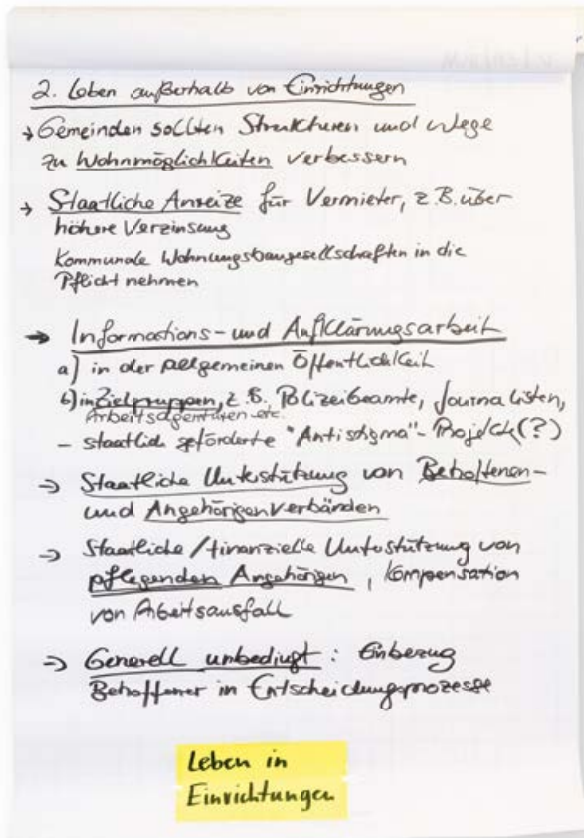 2. Leben außerhalb von Einrichtungen
→ Gemeinden sollten Strukturen und Wege
zu Wohnmöglichkeiten verbessern
→ Staatliche Anreize für Vermieter, z.B. über
höhere Verzinsung
Kommunale Wohnungsbaugesellschaften in die
Pflicht nehmen
→ Informations- und Aufklärungsarbeit
a) in der allgemeinen Öffentlichkeit
b) in Zielgruppen, z.B. Polizeibeamte, Journalisten,
Arbeitsagenturen etc.
- staatlich geförderte "Antistigma"-Projekte (?)
→ Staatliche Unterstützung von Betroffenen-
und Angehörigenverbänden
→ Staatliche / finanzielle Unterstützung von
pflegenden Angehörigen, Kompensation
von Arbeitsausfall
→ Generell unbedingt: Einbezug
Betroffener in Entscheidungsprozesse
Leben in
Einrichtungen